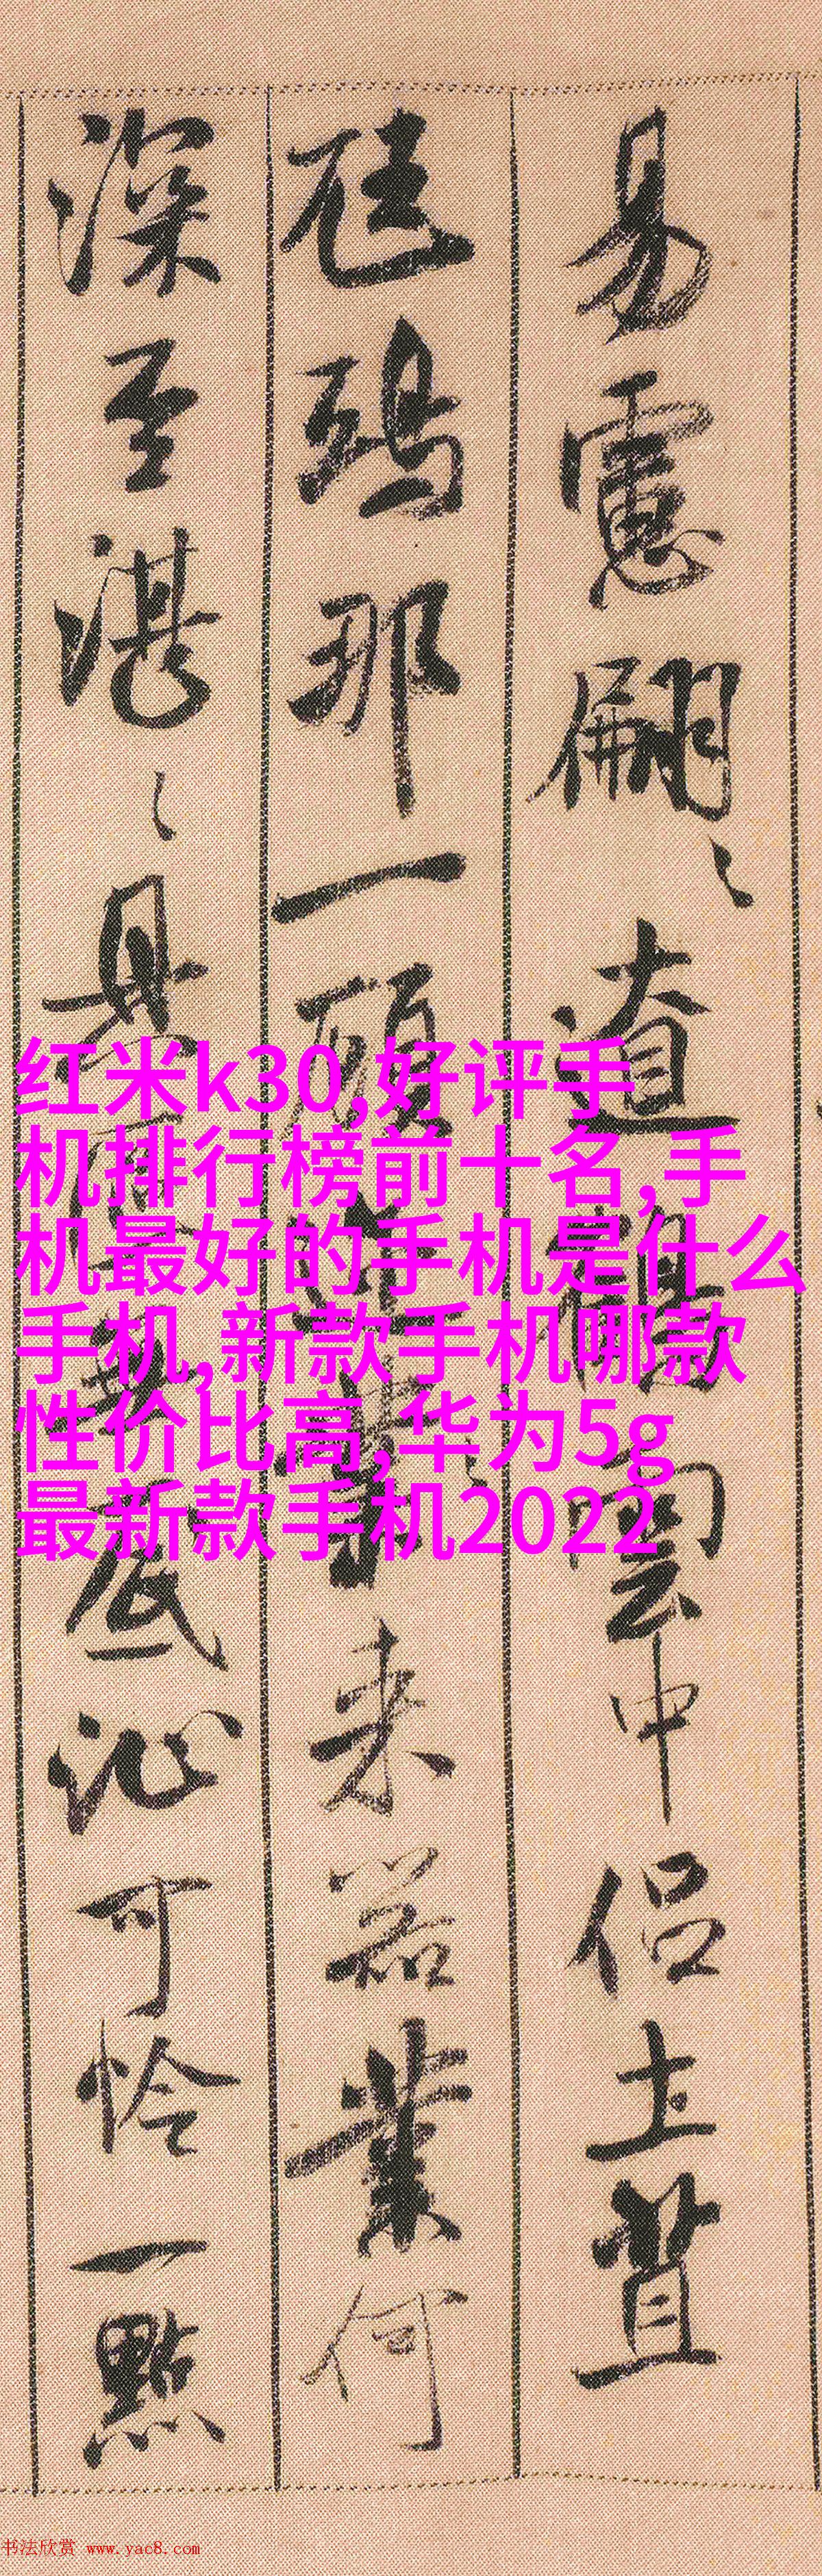 易慮翩〻道想雲中侶土苴
鵶那一顧来器業何
深至湛〻具區無底沁可怜一點
红米k30,好评手
机排行榜前十名,手
机最好的手机是什么
手机,新款手机哪款
性价比高,华为5g
最新款手机2022
书法欣赏 www.yac8.com